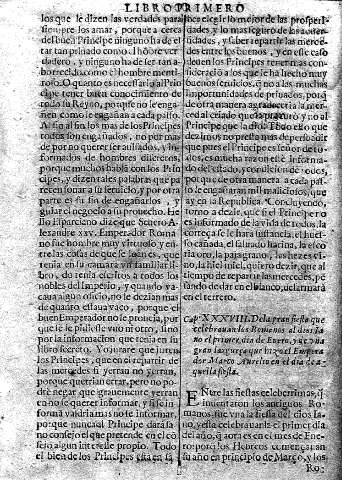 LIBRO PRIMERO
los que le dizen las verdades para
siempre los amar, porque a cerca
del buen Principe ninguno ha de es
tar tan priuado como el hõbre ver
dadero, y ninguno ha de ser tan a-
borrecido como el hombre menti-
roso. O quanto es necessario al Prin
cipe tener buen conocimiento de
todo su Reyno, porque no le engañen
como le engañan a cada passo.
Al fin al fin los mas de los Principes
todos son engañados, no por mas
de por no querer ser auisados, y in-
formados de hombres discretos,
porque muchos hablã con los Prin
cipes, y dizen tales palabras que pa
recen tocar a su seruicio, y por otra
parte es su fin de engañarlos, y
guiar el negocio a su prouecho. He
lio Esparciano dize que Seuero A-
lexandre xxv. Emperador Roma
no fue hombre muy virtuoso, y en-
tre las cosas de que le loan es, que
tenia en su camara vn familiar li-
bro, do tenia escritos a todos los
nobles del Imperio, y quando va-
caua algun oficio, no le dezian mas
de quanto estaua vaco, porque el
buen Emperador no le prouia, por
que se le pidiesse vno ni otro, sino
por la informacion que tenia en su
libro secreto. Yo jurare que juren
los Principes, que en el repartir de
las mercedes si yerran no yerran,
porque querrian errar, pero no po-
drã negar que grauemente yerran
en no se querer informar, y si se in-
forman valdria mas no se informar,
porque nunca al Principe dara bue
no consejo el que pretende en el cõ
sejo algun interesse propio. Todo
el bien de los Principes esta en sa-
ber elegir lo mejor de las prosperi-
dades, y lo mas seguro de las aduer
sidades, y saber repartir las merce-
des entre los buenos, y en este caso
deuen los Principes tener mas con-
sideracio a los que le ha hecho muy
buenos seruicios, q̃ no a las muchas
importunidades de priuados, porq̃
de otra manera agradecera la mer-
ced al criado que la procurò y no
al Principe que la dio. Todo lo que
dezimos no es mas de persuadir
que pues el Principe es señor de to
dos, es mucha razon este informa-
do del estado, y condicion de todos,
por que de otra manera a cada pas-
so le engañaran mil maliciosos, que
ay en la Republica. Concluyendo,
torno a dezir, que si el Principe no
es informado de la vida de todos, la
corteza le se contentara, el hues-
so cañada, el saluado harina, la esco
ria oro, la paja grano, las hezes vi-
no, la hiel miel, quiero dezir, que al
tiempo de repartir las mercedes, pẽ
sando dar en el blanco, dela marrã
en el terrero.
Cap. XXXVIII. De la gran fiesta que
celebrauan los Romanos al dios Ia
no el primer dia de Enero, y de vna
gran largueça que hizo el Empera
dor Marco Aurelio en el dia de a
quella fiesta.
ENtre las fiestas celeberrimas, q̃
inuentaron los antiguos Ro-
manos fue vna la fiesta del dios Ia-
no, y esta celebrauanla el primer dia
del año, q̃ aora es en el mes de Ene-
ro, porq̃ los Hebreos començauan
su año en principio de Março, y los
Ro-